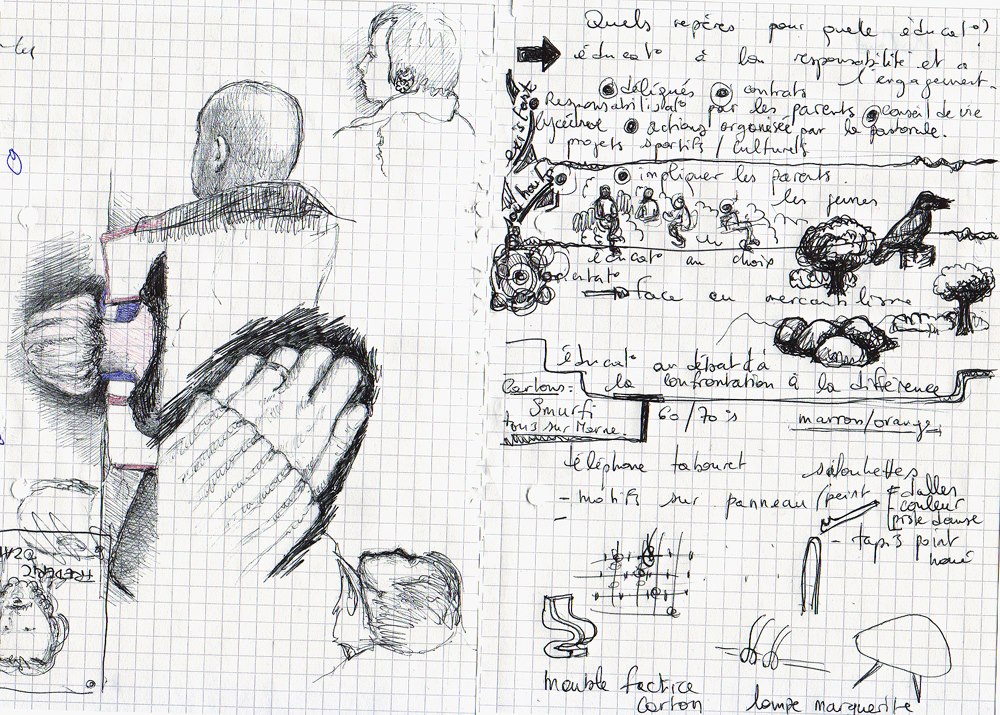 Quels repères pour quelle éducat°?
éducat° à la responsabilité et à
l'engagement.
délégués contrats
existant
Responsabilisat° par les parents conseil de vie
lycéenne actions organisée par la pastorale.
projets sportifs / culturels
souhaits
impliquer les parents.
les jeunes
éducat° au choix
orientat°
face au mercantilisme
éducat° au débat d à
la confrontation à la différence
Cartons:
Smurfi
sur Marne.
60/70's
marron/orange
téléphone tabouret
silouhettes
- motifs sur panneau/peint
dalles
couleur
piste danse
- tapis point
noué
meuble factice
carton
lampe marguerite
FREDERIC